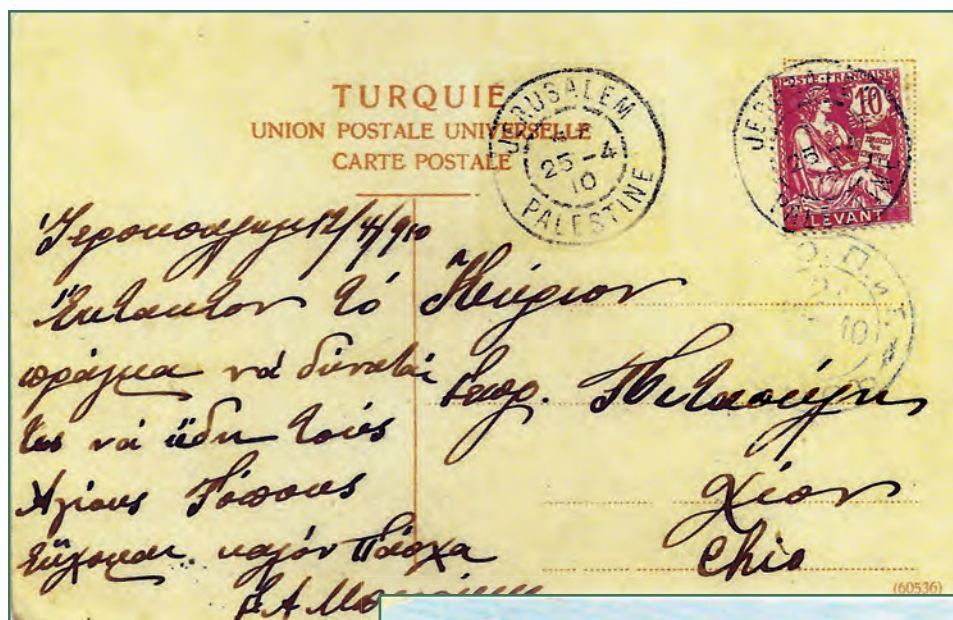 TURQUIE
UNION POSTALE UNIVERSELLE
CARTE POSTALE
JERUSALEM
25-4
10
PALESTINE
POSTE FRANÇAISE
10
LEVANT
12/4/910
Ἔκτακτον τό
πράγμα να δύναταί
τις νά ἴδη τούς
Ἁγίους Τόπους
Εὔχομαι καλόν Πάσχα
Κύριον
Χίον
Chio
(60536)